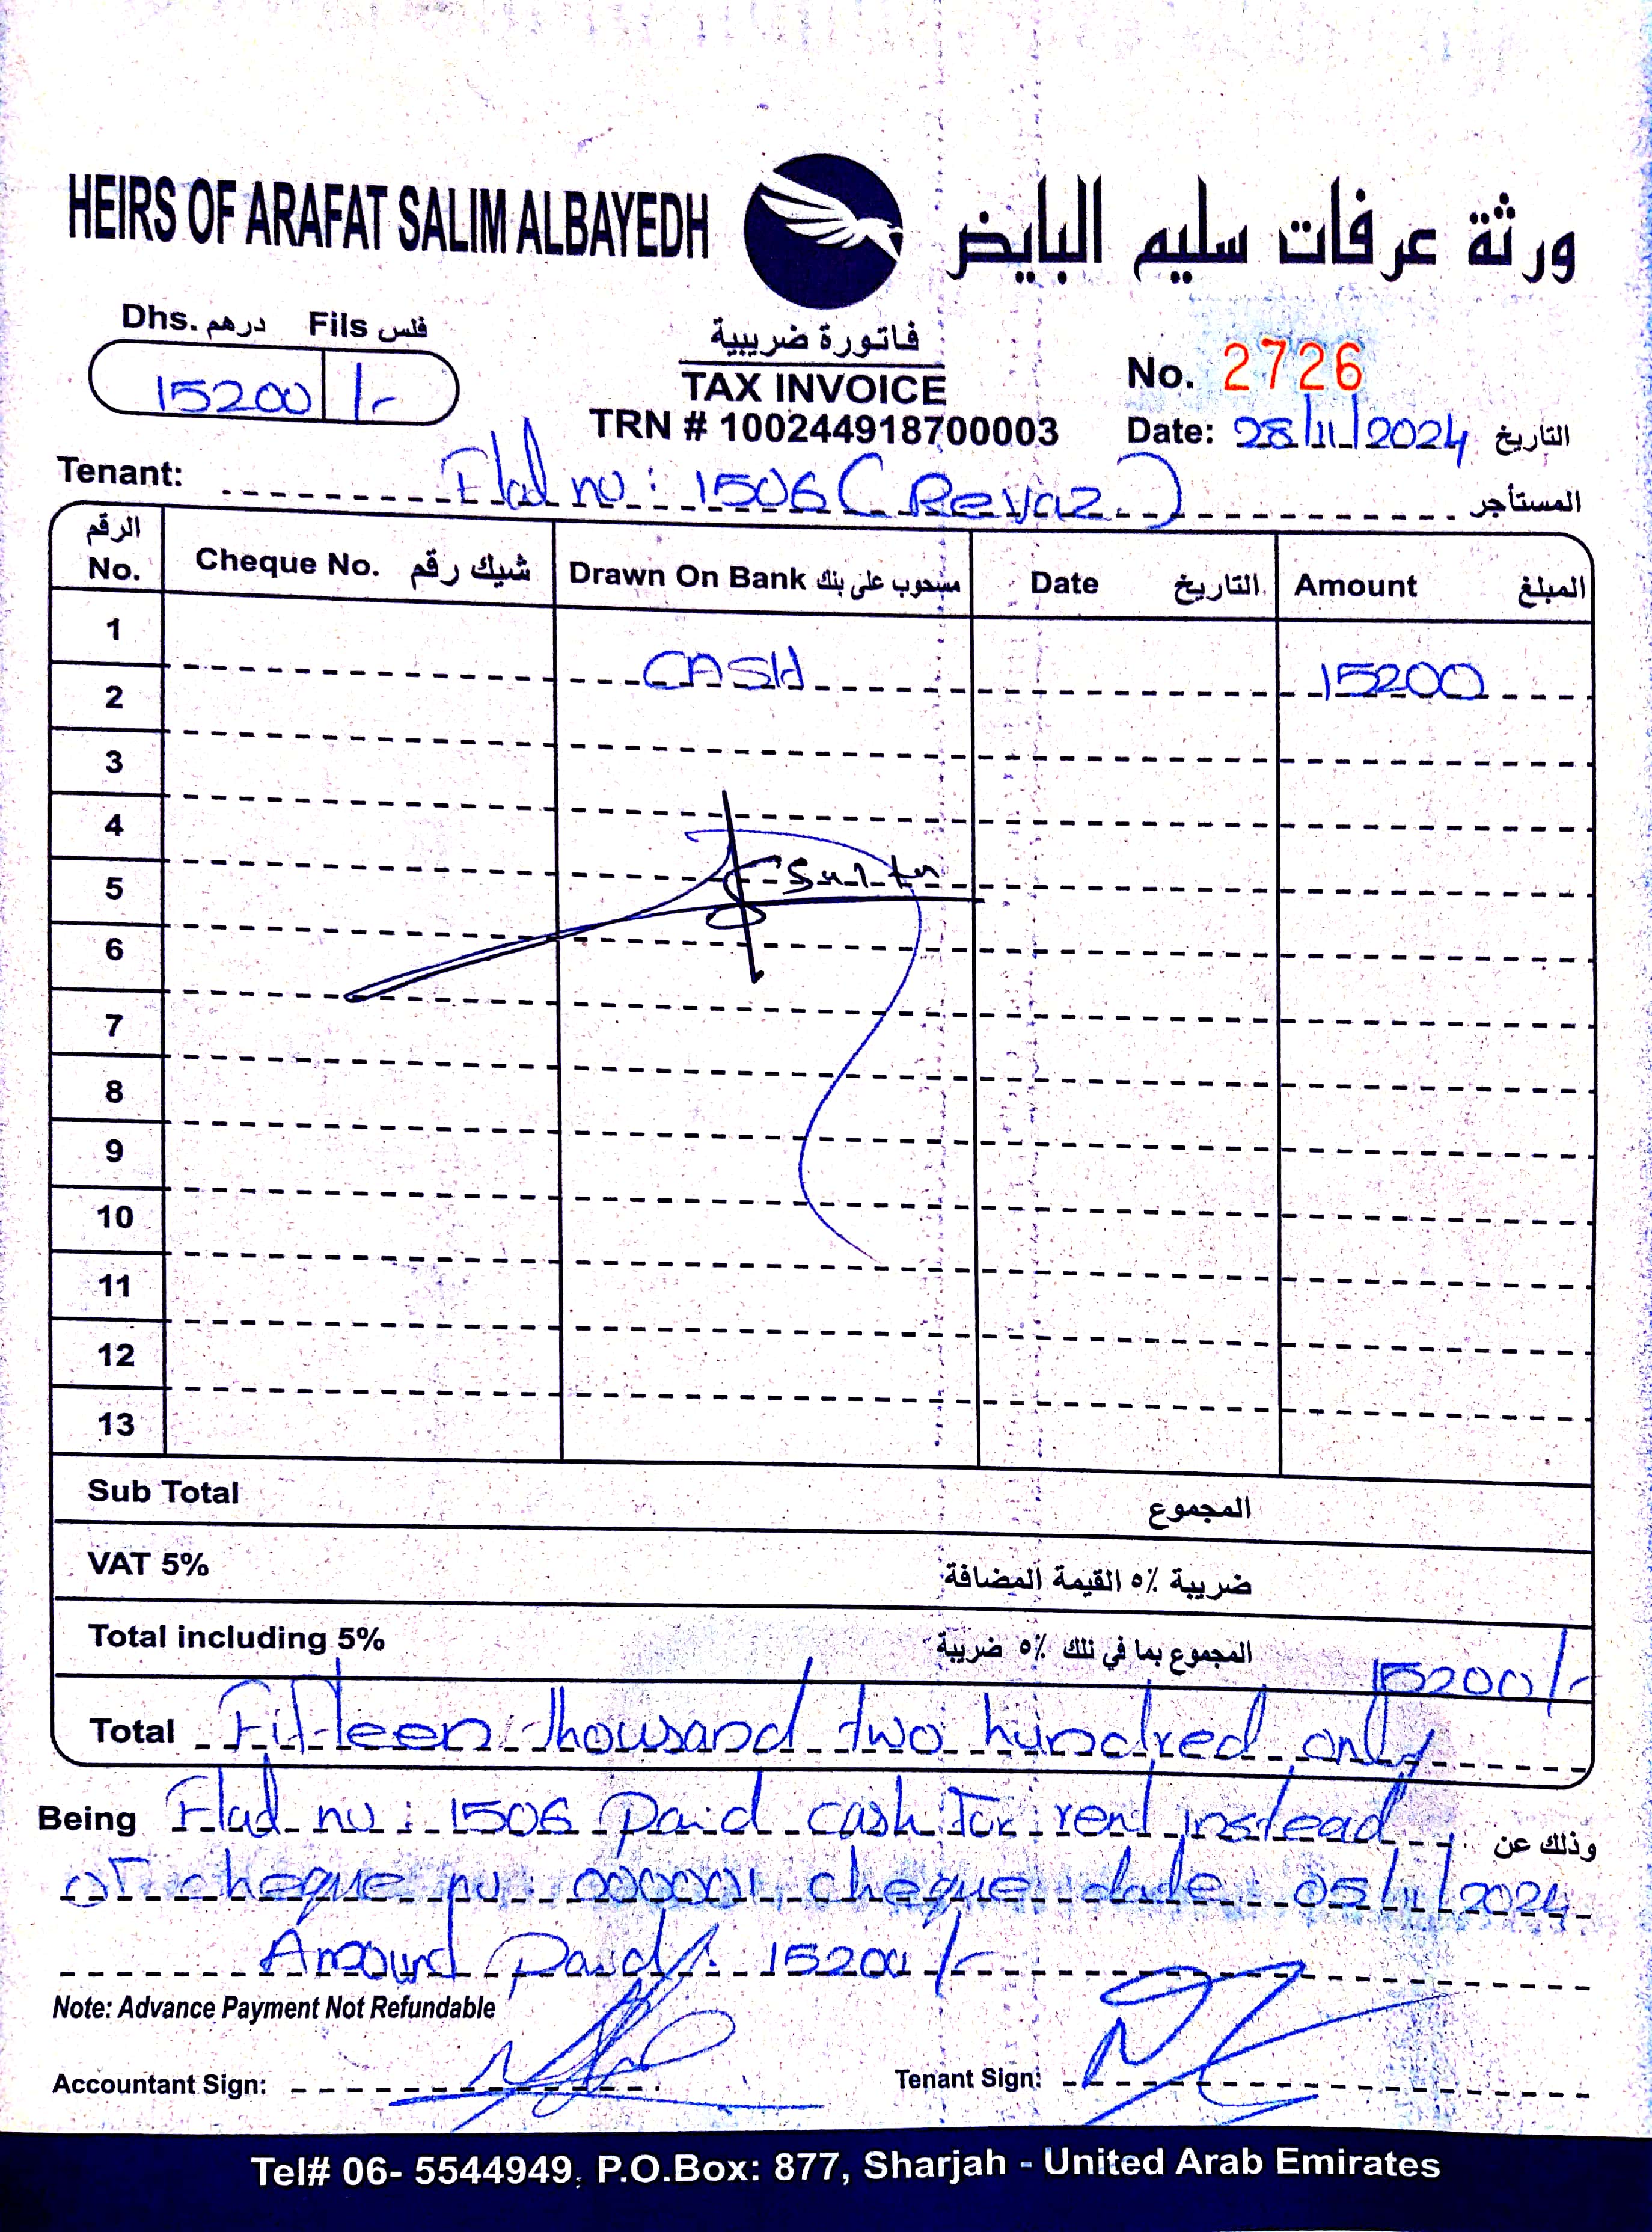 HEIRS OF ARAFAT SALIM ALBAYEDH
ورثة عرفات سليم البايض
Dhs. درهم Fils فلس
15200 /-
فاتورة ضريبية
TAX INVOICE
TRN # 100244918700003
No. 2726
Date: 28/11/2024 التاريخ
Tenant: Flat no: 1506 (Revaz) المستأجر
الرقم No. Cheque No. شيك رقم Drawn On Bank مسحوب على بنك Date التاريخ Amount المبلغ
1 CASH 15200
2
3
4
5
6
7
8
9
10
11
12
13
Sub Total المجموع
VAT 5% ضريبة ٥٪ القيمة المضافة
Total including 5% المجموع بما في تلك ٥٪ ضريبة 15200/-
Total Fifteen thousand two hundred only
Being Flat no: 1506 paid cash for rent instead وذلك عن
of cheque no: 000001, cheque date: 05/11/2024
Amount Paid: 15200/-
Note: Advance Payment Not Refundable
Accountant Sign:
Tenant Sign:
Tel# 06- 5544949, P.O.Box: 877, Sharjah - United Arab Emirates